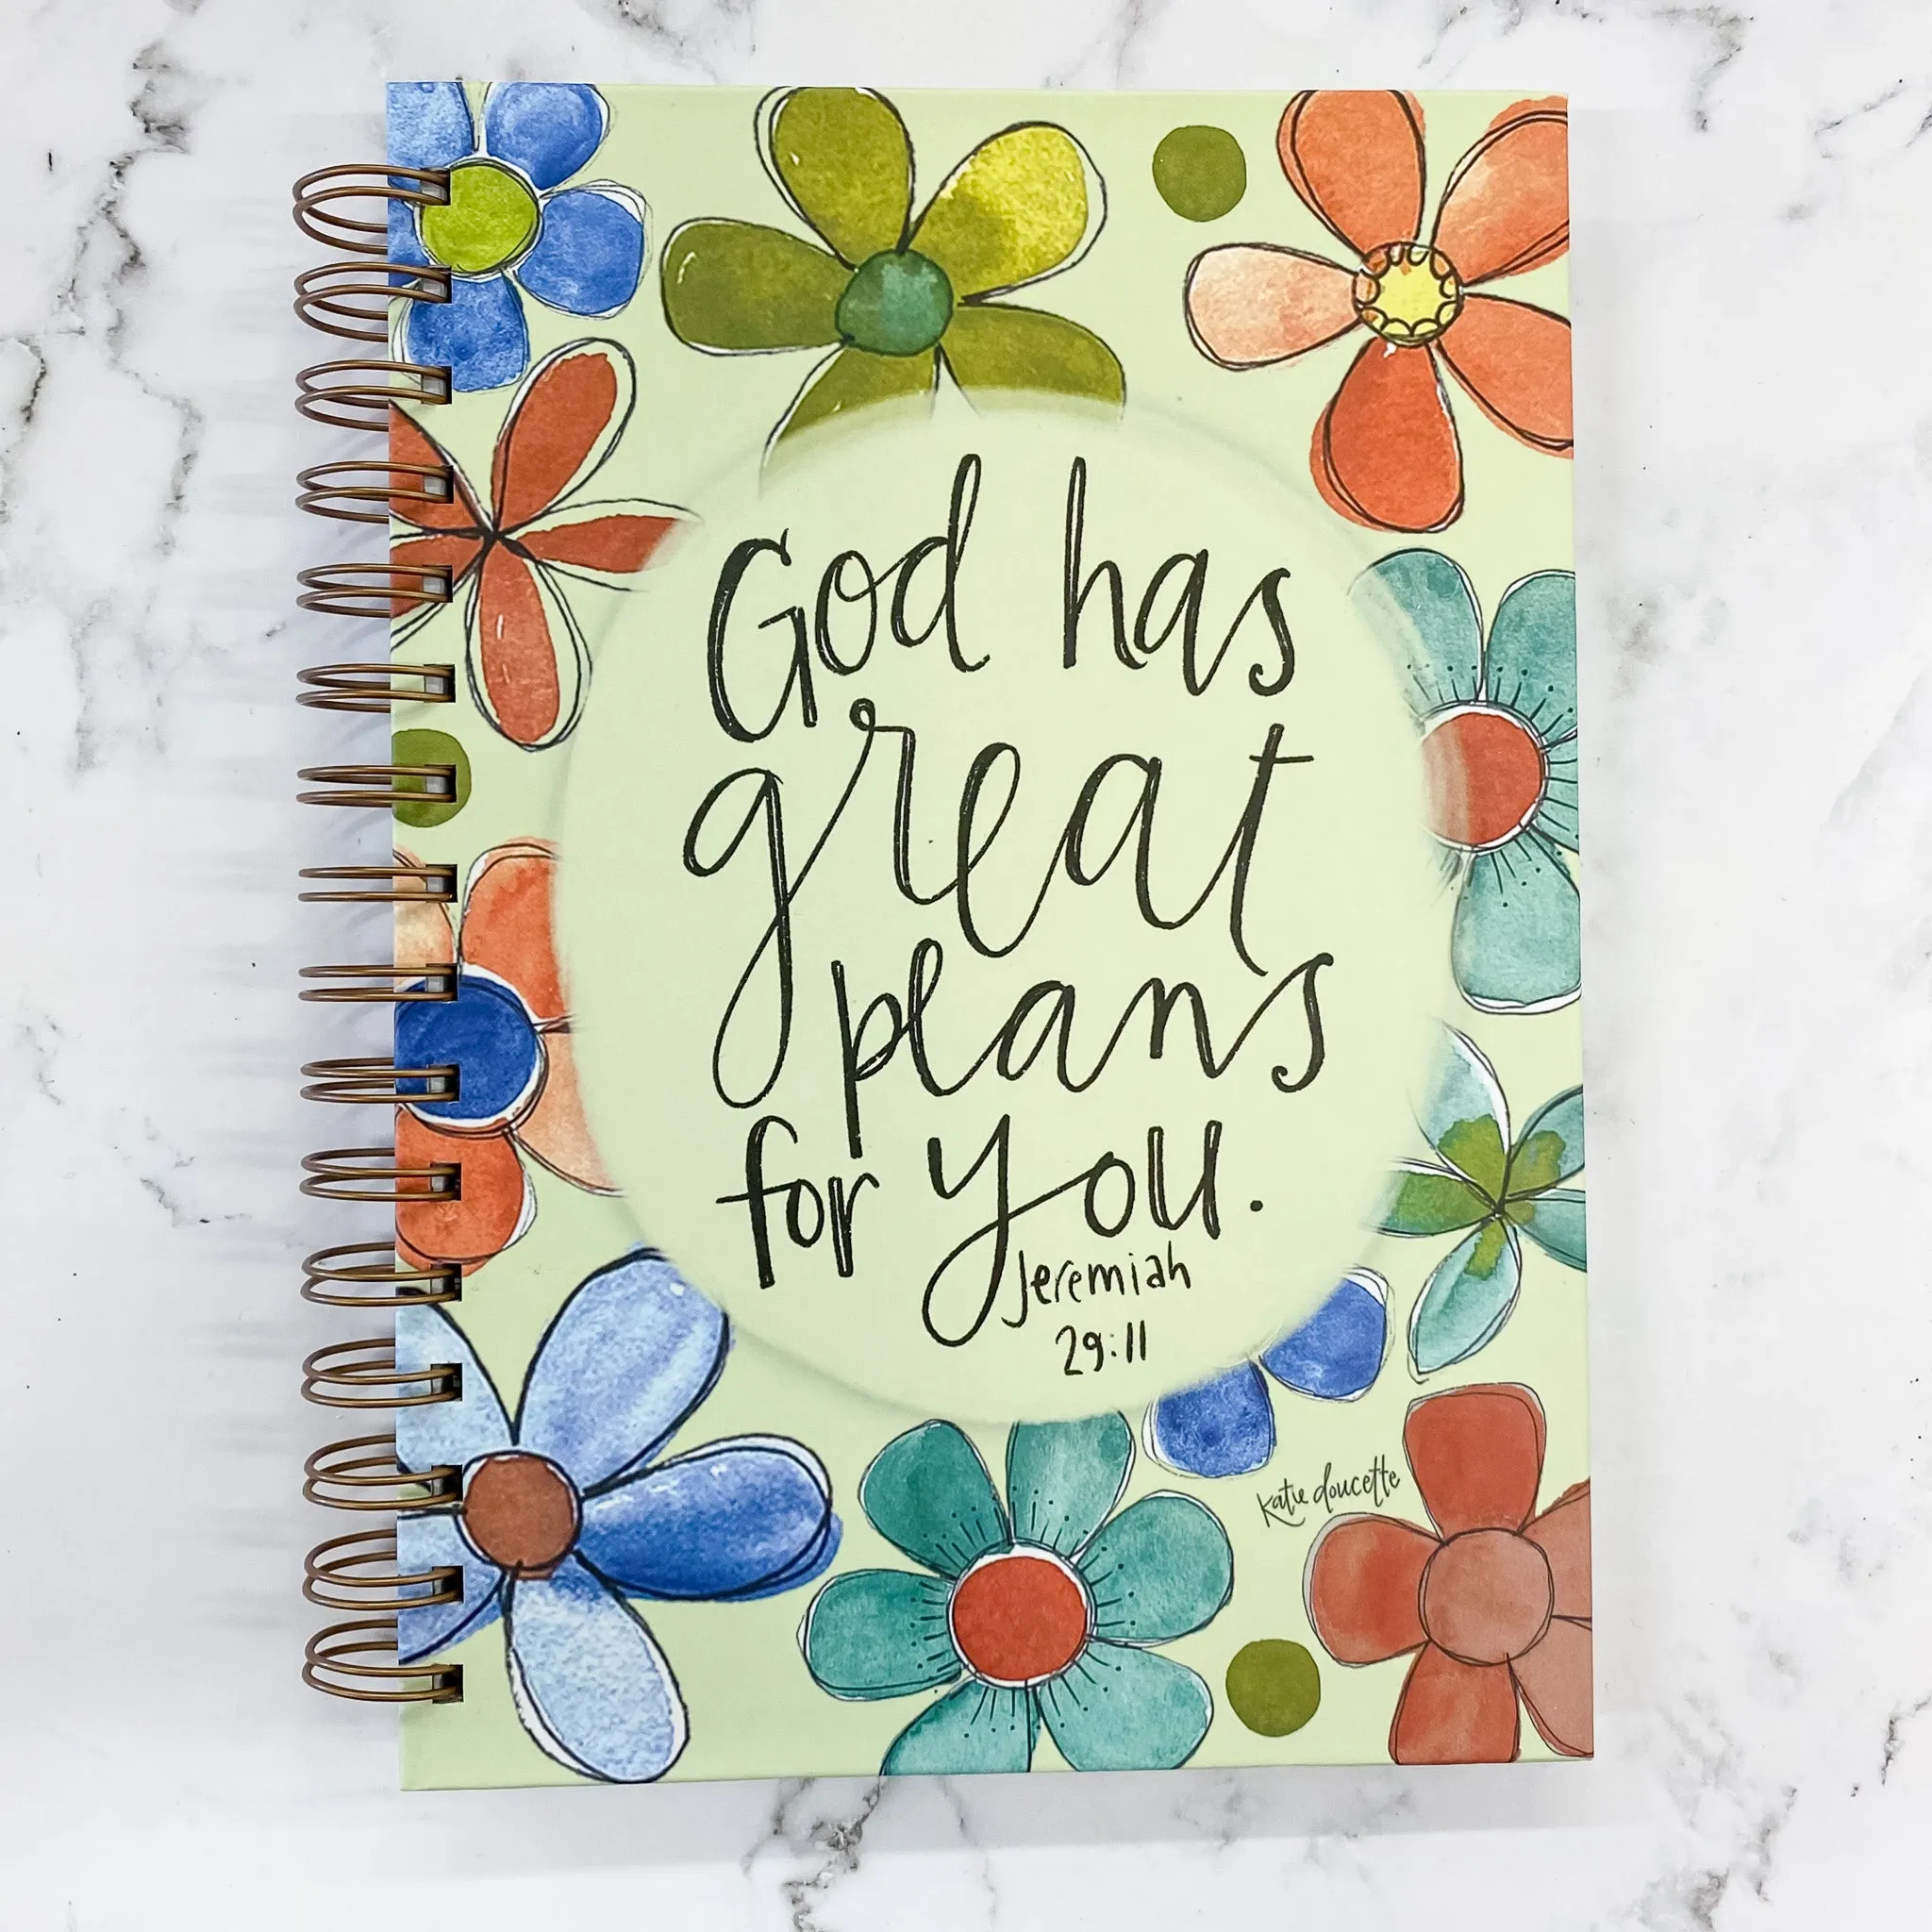 God has
great
plans
for you.
Jeremiah
29:11
katie doucette